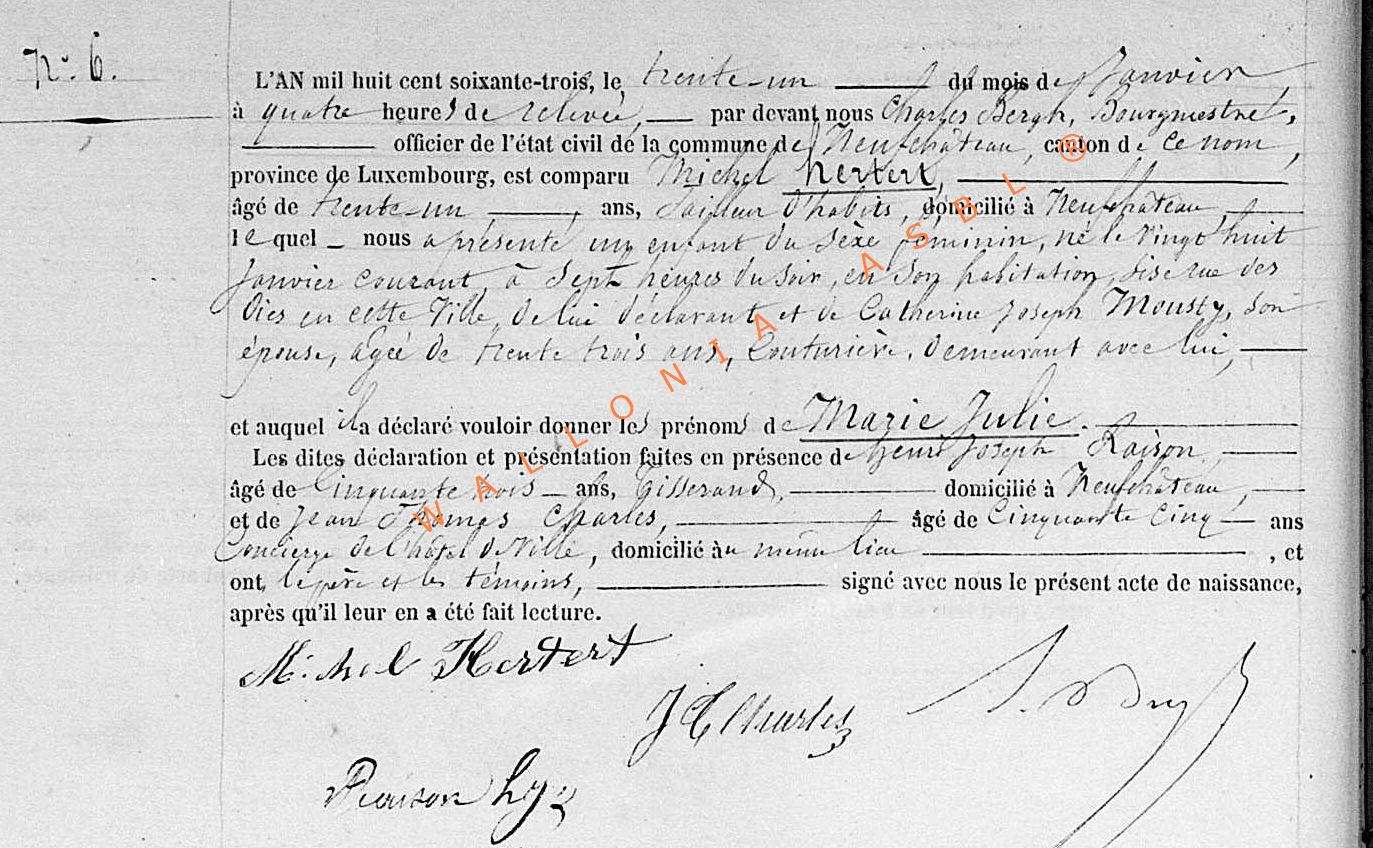 N° 6.
L'AN mil huit cent soixante-trois, le trente-un du mois de Janvier,
à quatre heures de relevée, par devant nous Charles Bergh, Bourgmestre,
officier de l'état civil de la commune de Neufchâteau, canton de ce nom,
province de Luxembourg, est comparu Michel Hertert,
âgé de trente-un ans, Tailleur d'habits, domicilié à Neufchâteau,
lequel nous a présenté un enfant du sèxe féminin, né le vingt huit
Janvier courant, à Sept heures du soir, en son habitation, sise rue des
Oies en cette Ville, de lui déclarant et de Catherine Joseph Mousty, son
épouse, agée de trente trois ans, Couturière, demeurant avec lui,
et auquel il a déclaré vouloir donner les prénoms de Marie Julie.
Les dites déclaration et présentation faites en présence de Henri Joseph Raison,
âgé de Cinquante trois ans, Tisserand, domicilié à Neufchâteau,
et de Jean Thomas Charles, âgé de Cinquante Cinq ans
Concierge de l'hôtel de Ville, domicilié au même lieu , et
ont, le père et les témoins, signé avec nous le présent acte de naissance,
après qu'il leur en a été fait lecture.
Michel Hertert
J T Charles
Raison hj
WALLONIA ASBL ®